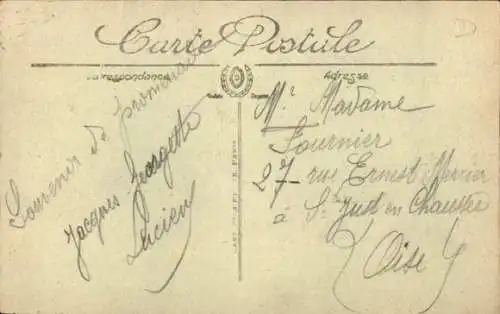 Carte Postale
Correspondance
Adresse
Souvenir de promenade
Jacques Georgette
Lucien
Mr Madame
Fournier
27 rue Ernest
à St Just en Chaussée
(Oise)